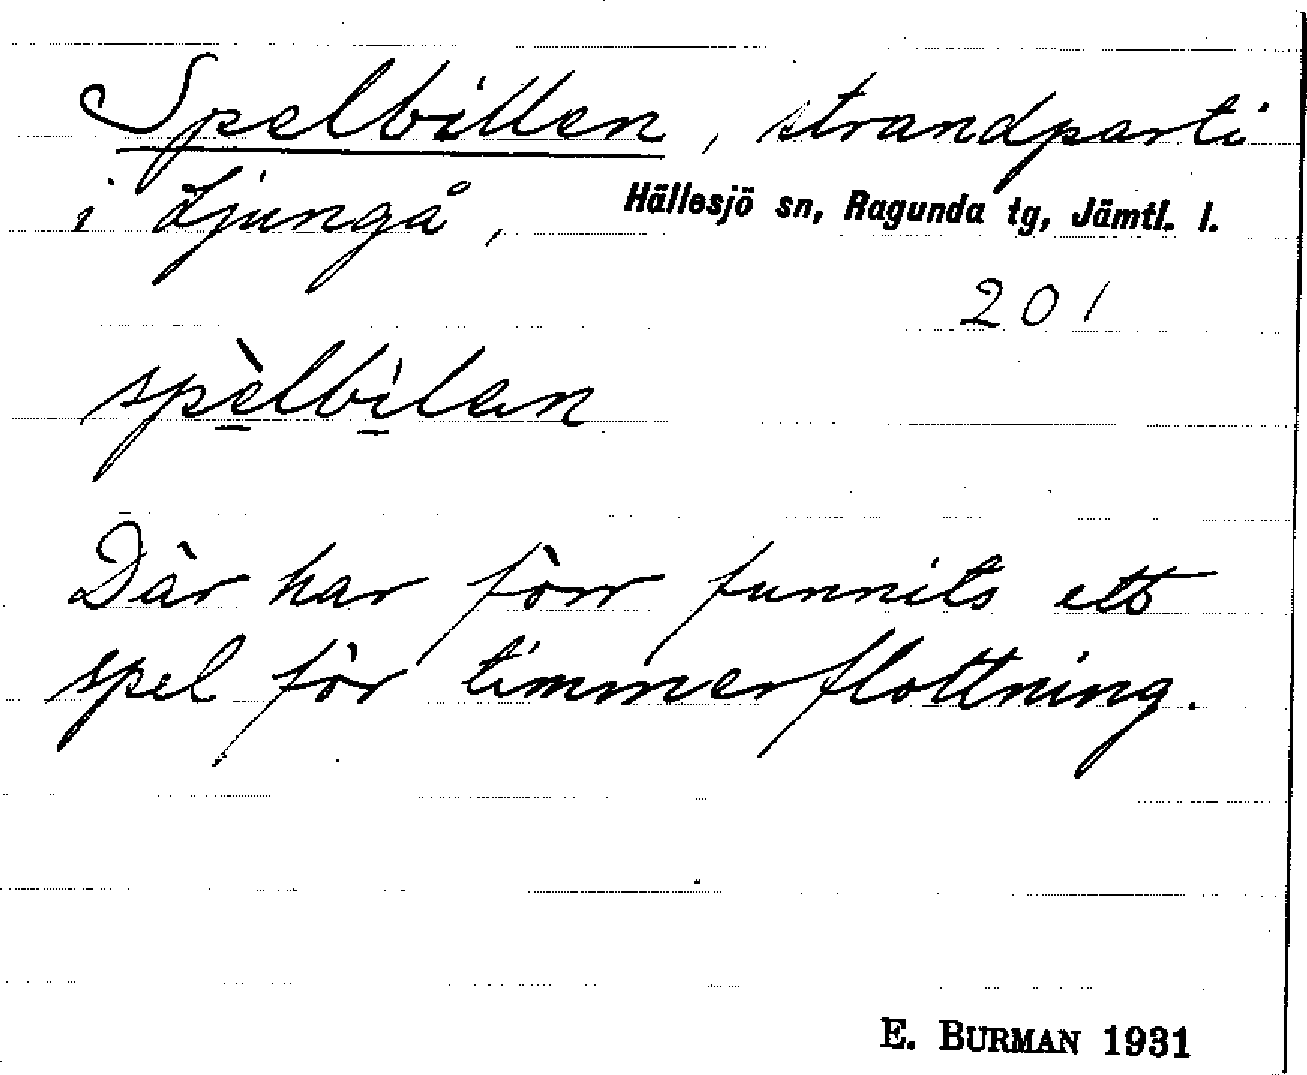 Spelbillen, strandparti
i Ljungå, Hällesjö sn, Ragunda tg, Jämtl. l.
201
spèlbìlan
Där har förr funnits ett
spel för timmerflottning.
E. BURMAN 1931